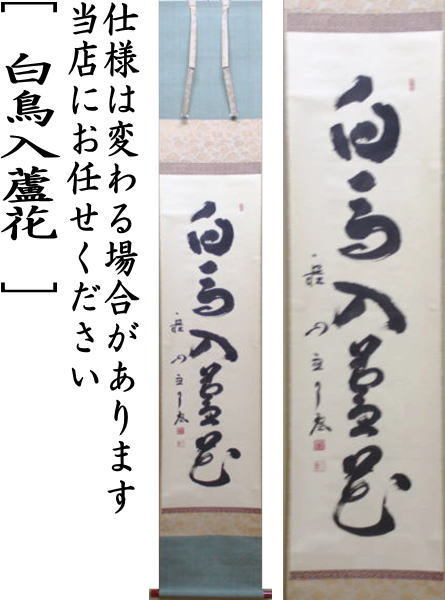 仕様は変わる場合があります
当店にお任せください
[ 白鳥入蘆花 ]
白鳥入蘆花
白鳥入蘆花